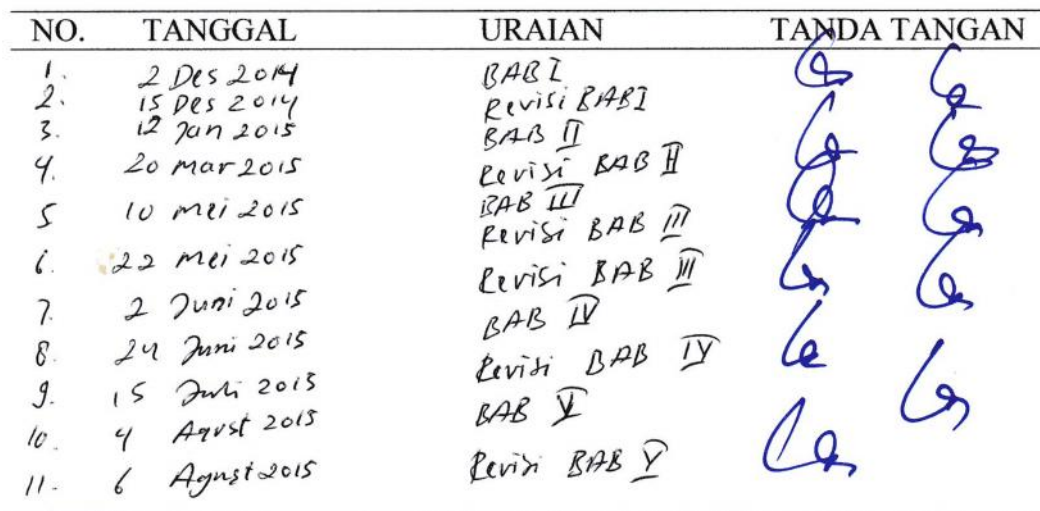 NO. TANGGAL URAIAN TANDA TANGAN
1. 2 Des 2014 BAB I
2. 15 Des 2014 Revisi BAB I
3. 12 Jan 2015 BAB II
4. 20 Mar 2015 Revisi BAB II
BAB III
5 10 Mei 2015 Revisi BAB III
6. 22 Mei 2015 Revisi BAB III
7. 2 Juni 2015 BAB IV
8. 24 Juni 2015 Revisi BAB IV
9. 15 Juli 2015 BAB V
10. 4 Agust 2015
11. 6 Agust 2015 Revisi BAB V